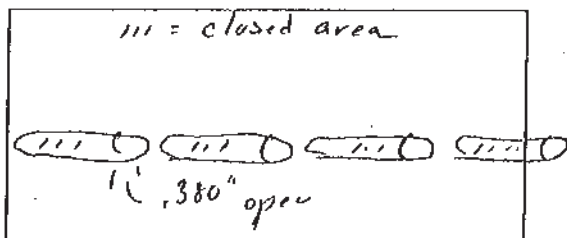 /// = closed area
/// /// /// ///
.380" open